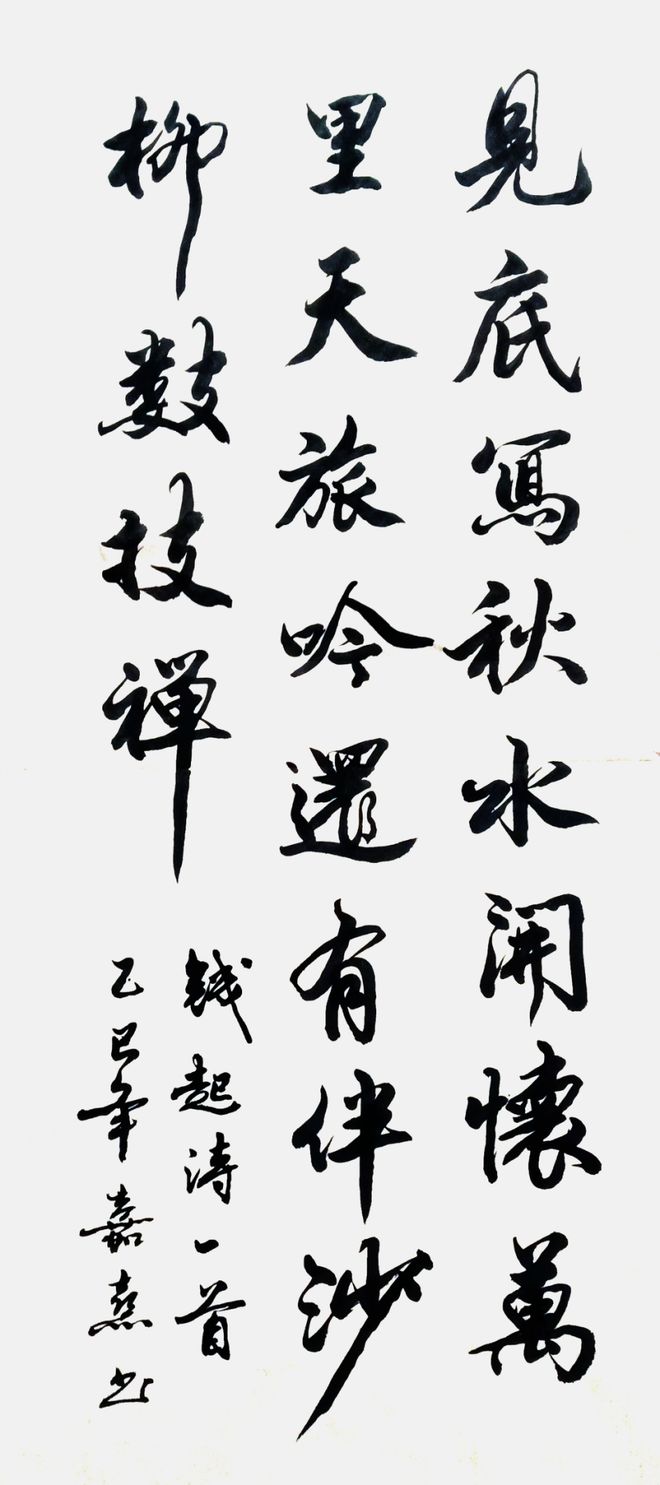 見底寫秋水開懷萬
里天旅吟還有伴沙
柳數技禪
錢起詩一首
乙巳年嘉熹书